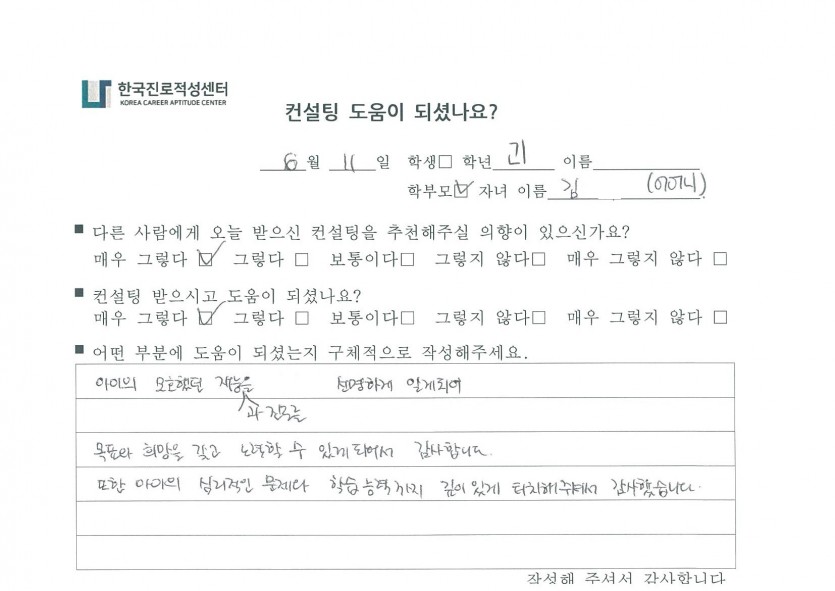 한국진로적성센터
KOREA CAREER APTITUDE CENTER
컨설팅 도움이 되셨나요?
6월 11일 학생□ 학년 고1 이름
학부모☑ 자녀 이름 김 (어머니)
■ 다른 사람에게 오늘 받으신 컨설팅을 추천해주실 의향이 있으신가요?
매우 그렇다 ☑ 그렇다 □ 보통이다□ 그렇지 않다□ 매우 그렇지 않다 □
■ 컨설팅 받으시고 도움이 되셨나요?
매우 그렇다 ☑ 그렇다 □ 보통이다□ 그렇지 않다□ 매우 그렇지 않다 □
■ 어떤 부분에 도움이 되셨는지 구체적으로 작성해주세요.
아이의 모호했던 재능을 선명하게 알게되어
과 진로를
목표와 희망을 갖고 노력할 수 있게 되어서 감사합니다.
또한 아이의 심리적인 문제와 학습 능력까지 깊이 있게 터치해주셔서 감사했습니다.
작성해 주셔서 감사합니다